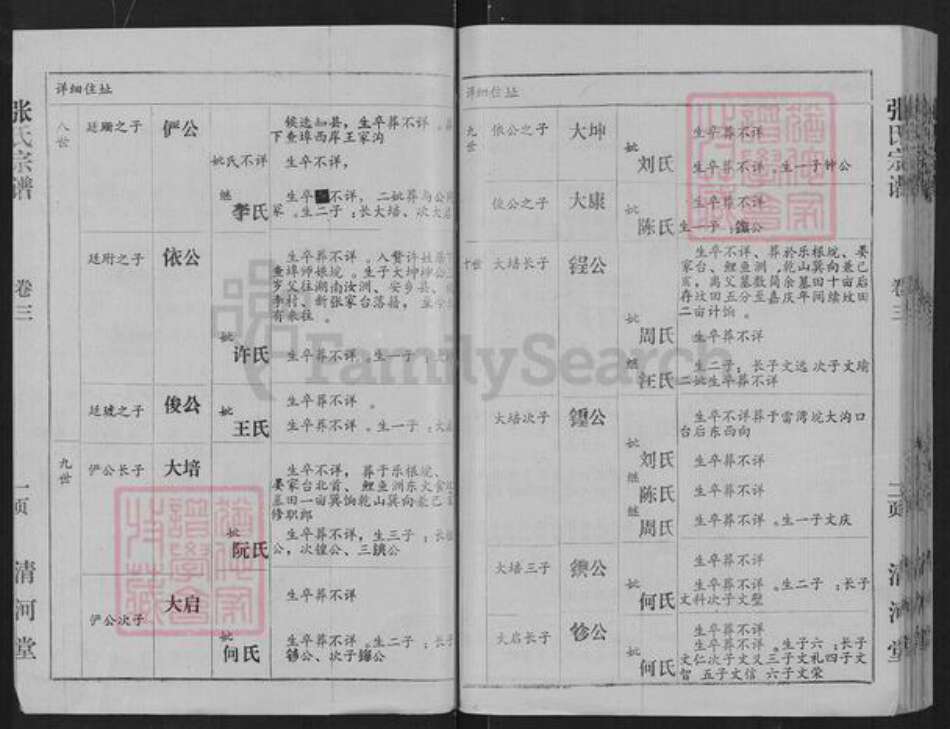 张氏宗谱
卷三
一页
清河堂
详细住址
八世
廷珊之子
俨公
候选知县，生卒葬不详。
下查埠西岸王家沟
妣氏不详
生卒不详，
继
李氏
生卒 不详，二妣葬与公
。生二子；长大培、次大启
廷玥之子
依公
生卒葬不详。入赘许姓
生子大坤坤公
岁父往湖南汝洲、安乡县、
李村、新张家台落籍，至今
有来往。
妣
许氏
生卒葬不详。生一子；
廷琥之子
俊公
生卒葬不详。
妣
王氏
生卒葬不详。生一子；大
九世
俨公长子
大培
生卒不详，葬于乐根垸、
晏家台北首、鲤鱼洲东
墓田一亩 乾山巽向兼巳
修职郎
妣
阮氏
生卒葬不详，生三子；长
公，次锽公、三
俨公次子
大启
生卒葬不详
妣
何氏
生卒葬不详。生二子；长子
公、次子 公
详细住址
九世
依公之子
大坤
生卒葬不详
妣
刘氏
生卒葬不详。生一子钟公
俊公之子
大康
生卒葬不详
妣
陈氏
生一子；公
十世
大培长子
锃公
生卒不详、葬於乐根垸、晏
家台、鲤鱼洲，乾山巽向兼巳
亥，离父墓数筒余墓田十亩后
存坟田五分至嘉庆年间续坟田
二亩计 。
妣
周氏
生卒葬不详
继
汪氏
生二子；长子文远 次子文瑜
二妣生卒葬不详
大培次子
公
生卒不详葬于雷湾垸大沟口
台后东西向
妣
刘氏
生卒葬不详
继
陈氏
生卒葬不详
继
周氏
生卒葬不详。生一子文庆
大培三子
公
生卒葬不详
妣
何氏
生卒葬不详。生二子；长子
文科次子文璧
大启长子
公
生卒葬不详
妣
何氏
生卒葬不详。生子六；长子
文仁次子文义三子文礼四子文
智 五子文信 六子文荣
张氏宗谱
卷三
二页
清河堂
FamilySearch